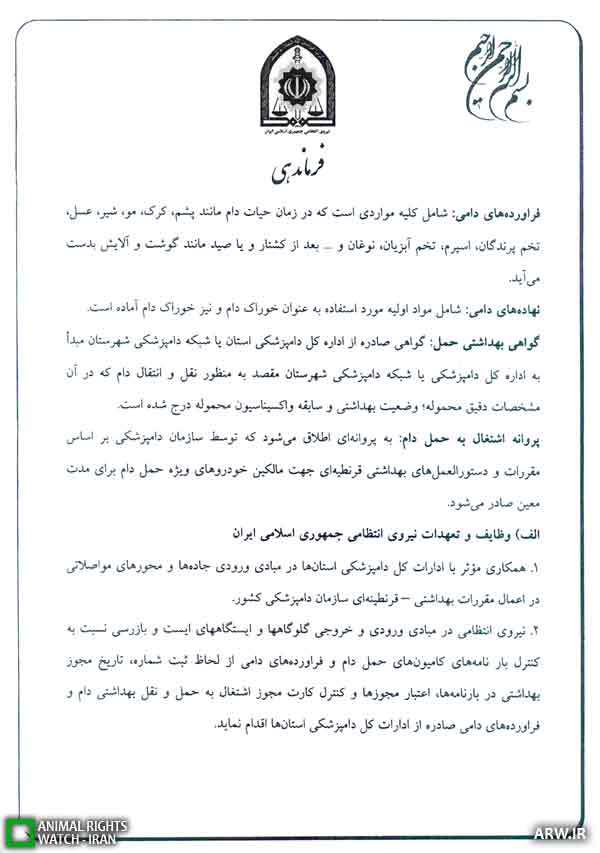 بسم الله الرحمن الرحیم
نیروی انتظامی جمهوری اسلامی ایران
فرماندهی
فراورده‌های دامی: شامل کلیه مواردی است که در زمان حیات دام مانند پشم، کرک، مو، شیر، عسل،
تخم پرندگان، اسپرم، تخم آبزیان، نوغان و ... بعد از کشتار و یا صید مانند گوشت و آلایش بدست
می‌آید.
نهاده‌های دامی: شامل مواد اولیه مورد استفاده به عنوان خوراک دام و نیز خوراک دام آماده است.
گواهی بهداشتی حمل: گواهی صادره از اداره کل دامپزشکی استان یا شبکه دامپزشکی شهرستان مبدأ
به اداره کل دامپزشکی یا شبکه دامپزشکی شهرستان مقصد به منظور نقل و انتقال دام که در آن
مشخصات دقیق محموله؛ وضعیت بهداشتی و سابقه واکسیناسیون محموله درج شده است.
پروانه اشتغال به حمل دام: به پروانه‌ای اطلاق می‌شود که توسط سازمان دامپزشکی بر اساس
مقررات و دستورالعمل‌های بهداشتی قرنطیه‌ای جهت مالکین خودروهای ویژه حمل دام برای مدت
معین صادر می‌شود.
الف) وظایف و تعهدات نیروی انتظامی جمهوری اسلامی ایران
۱. همکاری مؤثر با ادارات کل دامپزشکی استان‌ها در مبادی ورودی جاده‌ها و محورهای مواصلاتی
در اعمال مقررات بهداشتی – قرنطینه‌ای سازمان دامپزشکی کشور.
۲. نیروی انتظامی در مبادی ورودی و خروجی گلوگاهها و ایستگاههای ایست و بازرسی نسبت به
کنترل بار نامه‌های کامیون‌های حمل دام و فراورده‌های دامی از لحاظ ثبت شماره، تاریخ مجوز
بهداشتی در بارنامه‌ها، اعتبار مجوزها و کنترل کارت مجوز اشتغال به حمل و نقل بهداشتی دام و
فراورده‌های دامی صادره از ادارات کل دامپزشکی استان‌ها اقدام نماید.
ANIMAL RIGHTS
WATCH - IRAN
ARW.IR